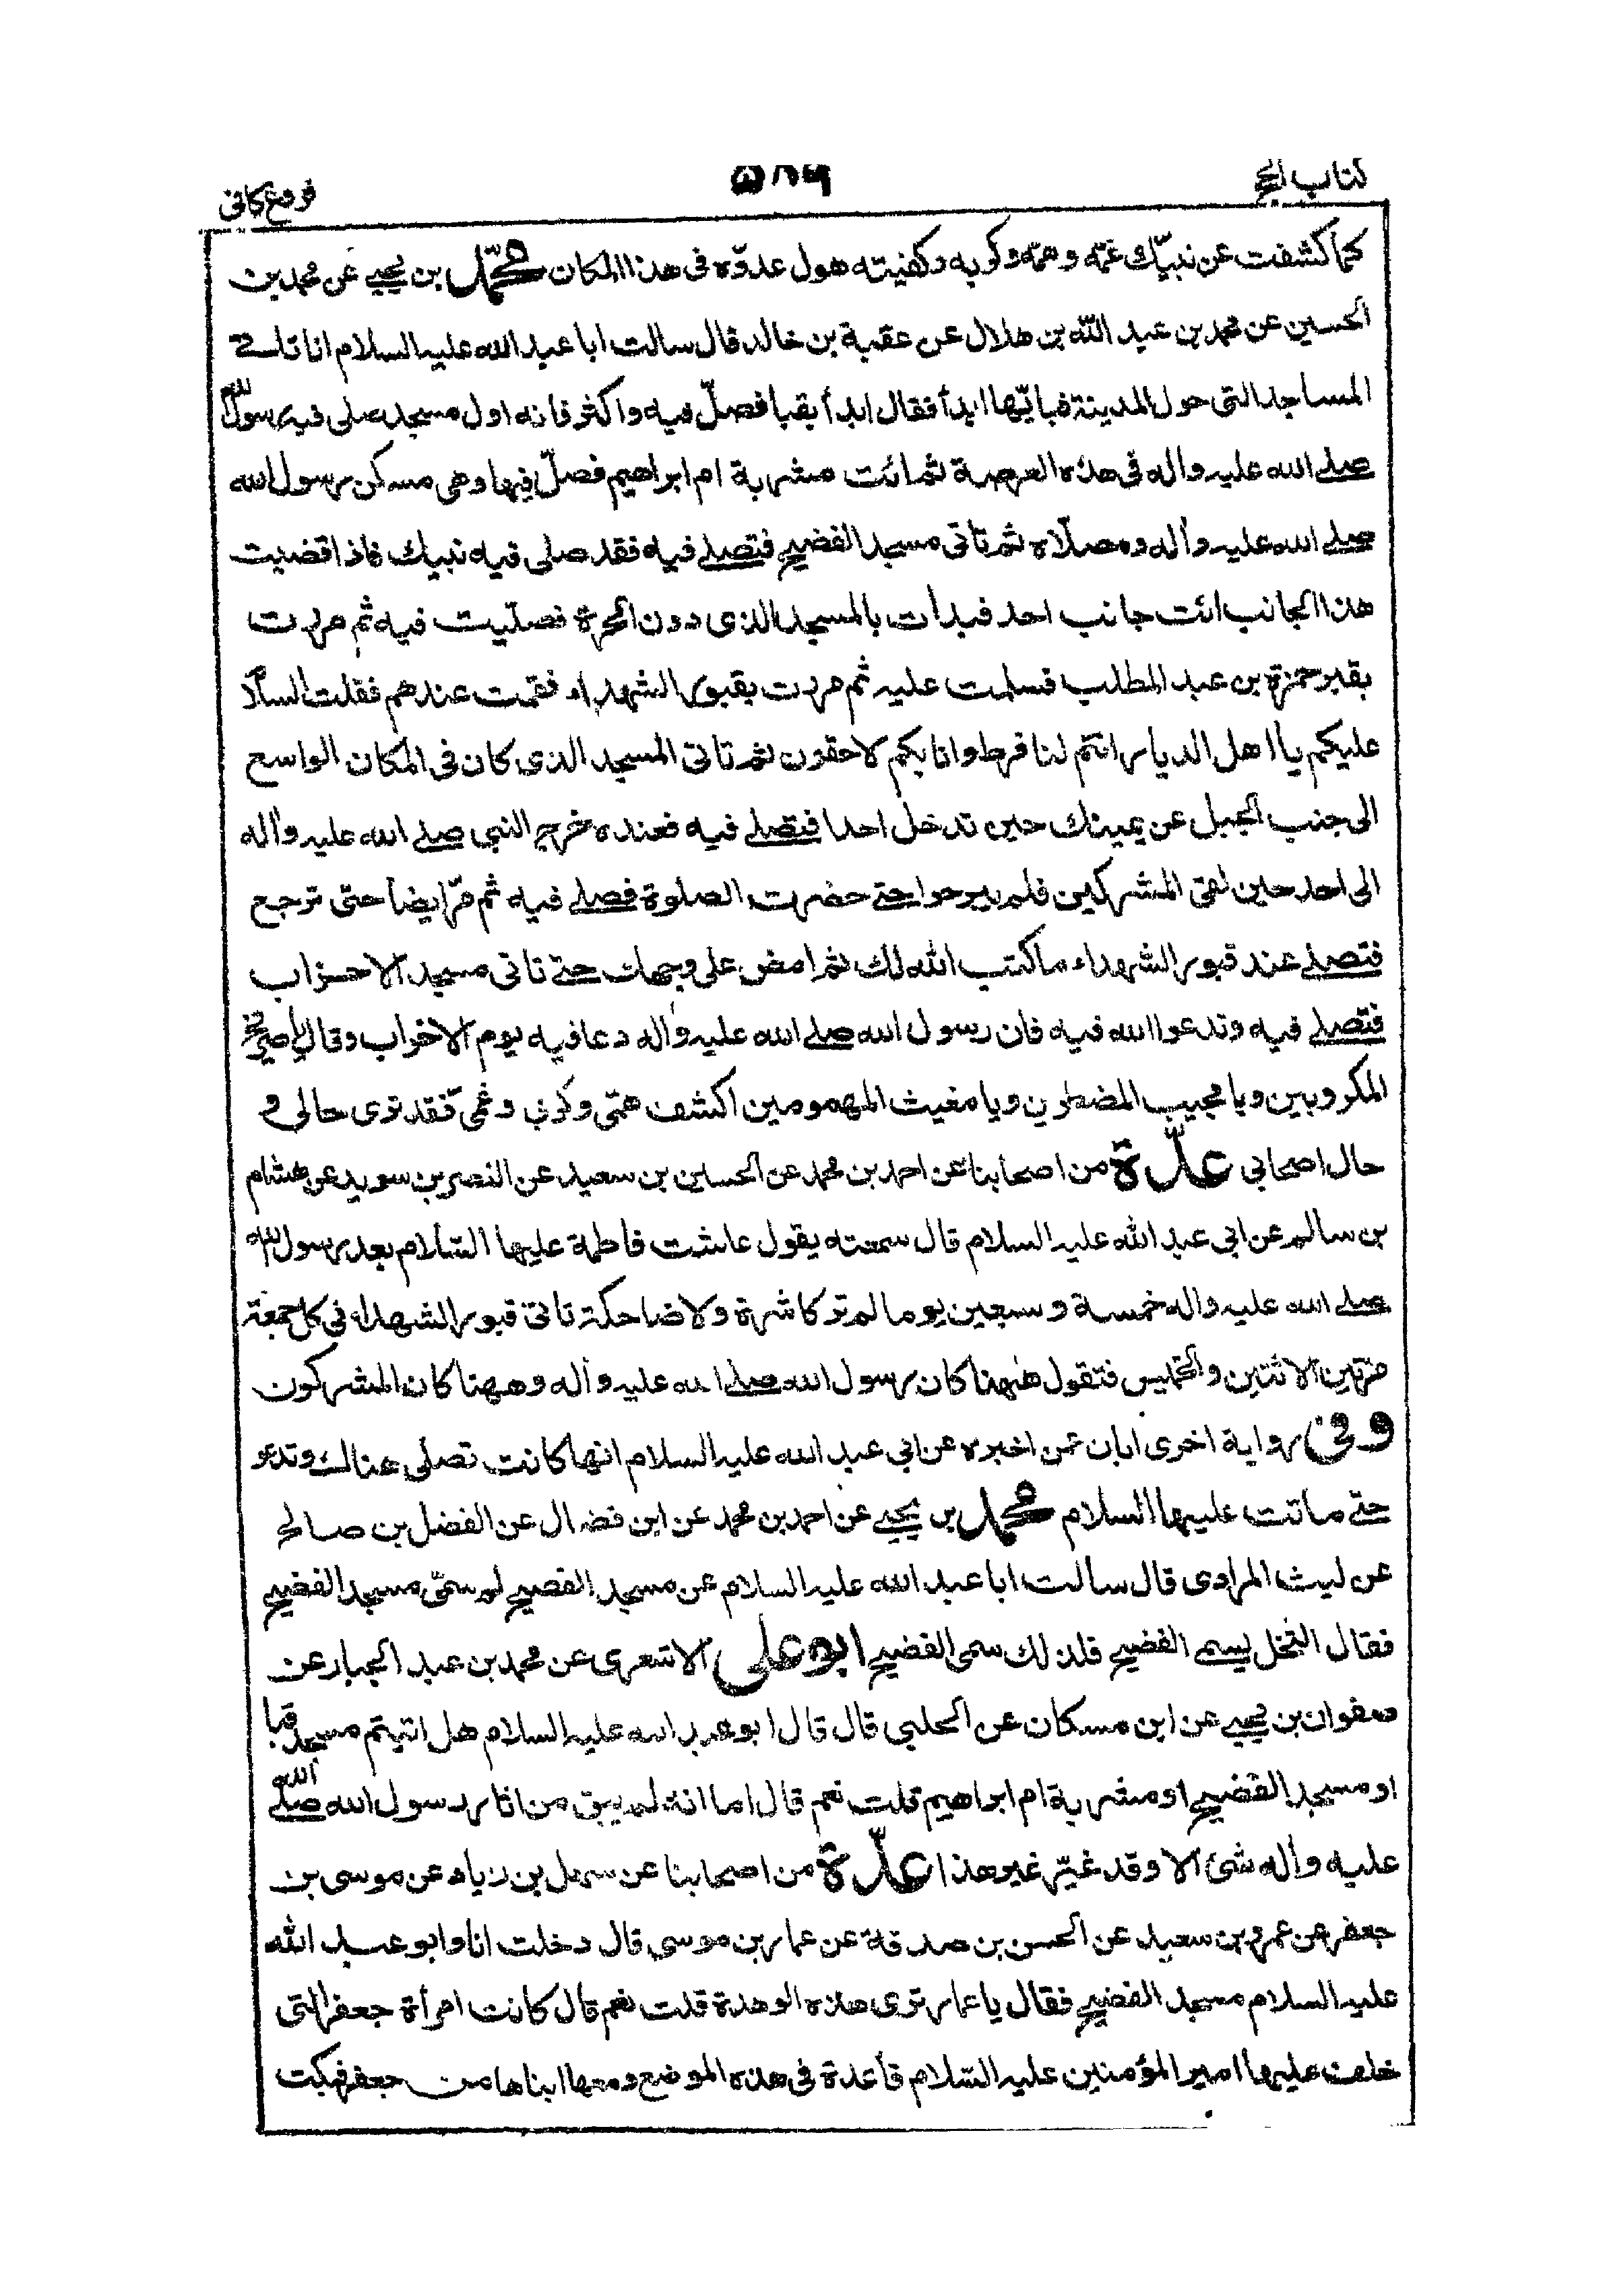 كتاب الحج
فروع كافى
كما كشفت عن نبيّك غمّه وهمّه وكربه وكفيته هول عدوّه فى هذا المكان محمّد بن يحيى عن محمد بن
الحسين عن محمد بن عبد اللّه بن هلال عن عقبة بن خالد قال سالت ابا عبد الله عليه السلام انا ناتى
المساجد التى حول المدينة فبايّها ابدأ فقال ابدأ بقبا فصلّ فيه واكثر فانه اول مسجد صلى فيه رسول الله
صلى الله عليه واله فى هذه العرصة ثم ائت مشربة ام ابراهيم فصلّ فيها وهى مسكن رسول الله
صلى الله عليه واله ومصلّاه ثم تاتى مسجد الفضيح فتصلى فيه فقد صلى فيه نبيك فاذا قضيت
هذا الجانب ائت جانب احد فبدأت بالمسجد الذى دون الحرة فصلّيت فيه ثم مررت
بقبر حمزة بن عبد المطلب فسلمت عليه ثم مررت بقبور الشهداء فقمت عندهم فقلت السلام
عليكم يا اهل الديار انتم لنا فرط وانا بكم لاحقون ثم تاتى المسجد الذى كان فى المكان الواسع
الى جنب الجبل عن يمينك حين تدخل احدا فتصلى فيه فعنده خرج النبي صلى الله عليه واله
الى احد حين لقى المشركين فلم يبرحوا حتى حضرت الصلوة فصلى فيه ثم مرّ ايضا حتى ترجع
فتصلى عند قبور الشهداء ما كتب الله لك ثم امض على وجهك حتى تاتى مسجد الاحزاب
فتصلى فيه وتدعوا الله فيه فان رسول الله صلى الله عليه واله دعا فيه يوم الاخراب وقال يا صريخ
المكروبين ويا مجيب المضطرين ويا مغيث المهمومين اكشف همّى وكربى وغمّى فقد ترى حالى و
حال اصحابى عدّة من اصحابنا عن احمد بن محمد عن الحسين بن سعيد عن النضر بن سويد عن هشام
بن سالم عن ابى عبد الله عليه السلام قال سمعته يقول عاشت فاطمة عليها السّلام بعد رسول الله
صلى الله عليه واله خمسة وسبعين يوما لم تر كاشرة ولا ضاحكة تاتى قبور الشهداء فى كل جمعة
مرّتين الاثنين والخميس فتقول ههنا كان رسول الله صلى الله عليه واله وههنا كان المشركون
وفى رواية اخرى ابان عمن اخبره عن ابى عبد الله عليه السلام انها كانت تصلّى هناك وتدعو
حتى ماتت عليها السلام محمد بن يحيى عن احمد بن محمد عن ابن فضال عن الفضل بن صالح
عن ليث المرادى قال سالت ابا عبد الله عليه السلام عن مسجد الفضيح لم سمّى مسجد الفضيح
فقال النخل يسمى الفضيح فلذلك سمى الفضيح ابو على الاشعرى عن محمد بن عبد الجبار عن
صفوان بن يحيى عن ابن مسكان عن الحلبى قال قال ابو عبد الله عليه السلام هل اتيتم مسجد قبا
او مسجد الفضيح او مشربة ام ابراهيم قلت نعم قال اما انه لم يبق من اثار رسول الله صلى الله
عليه واله شئ الا وقد غيّر غير هذا عدّة من اصحابنا عن سهل بن زياد عن موسى بن
جعفر عن عمرو بن سعيد عن الحسن بن صدقة عن عمار بن موسى قال دخلت انا وابو عبد الله
عليه السلام مسجد الفضيح فقال يا عمار ترى هذه الوهدة قلت نعم قال كانت امرأة جعفر التى
خلف عليها امير المؤمنين عليه السّلام قاعدة فى هذه الموضع ومعها ابناها من جعفر فبكت